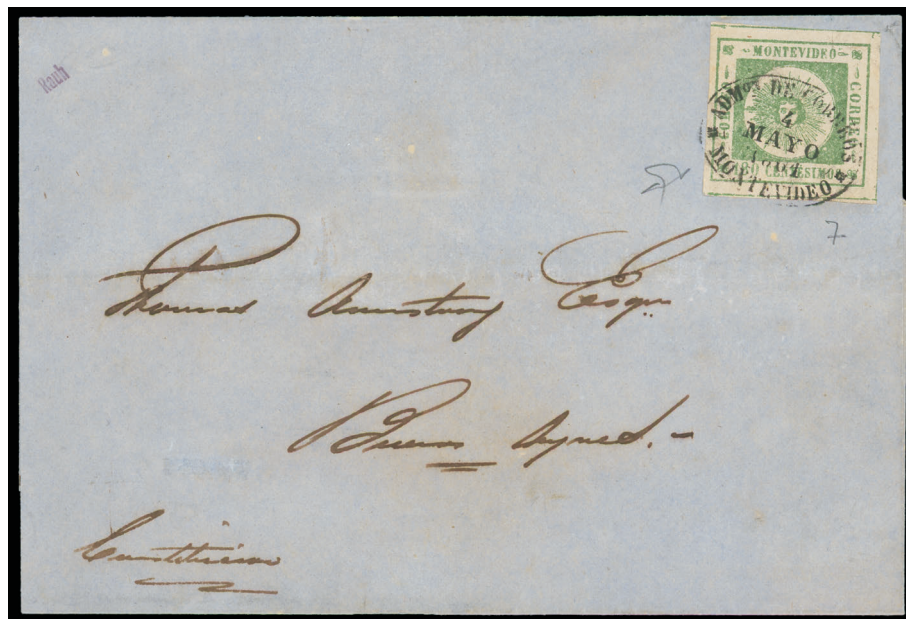 Rauh
MONTEVIDEO
CORREO CORREO
80 CENTESIMOS
ADMON DE CORREOS
4
MAYO
MONTEVIDEO
7
Thomas Armstrong Esqre
Buenos Ayres.-
Constitucion